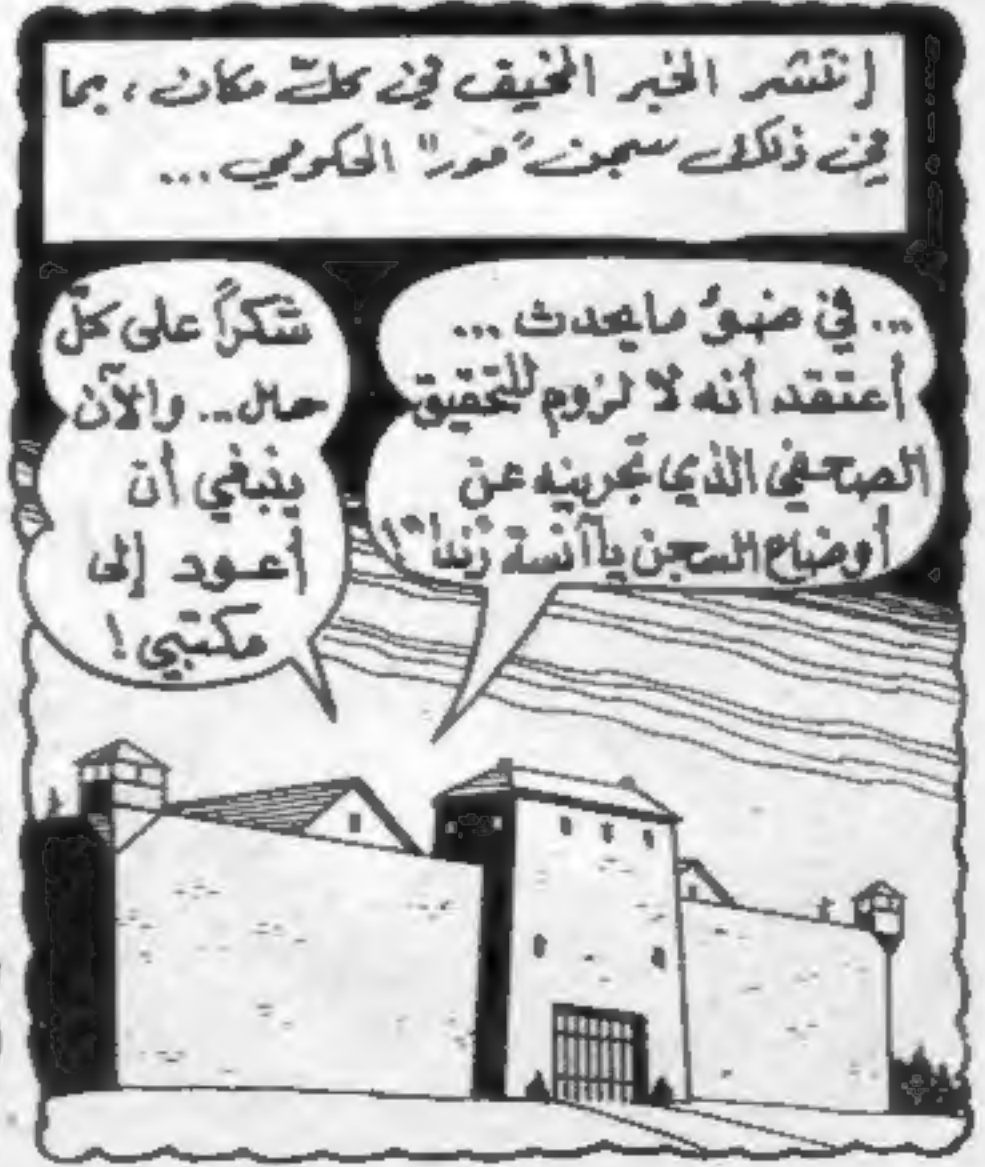 إنتشر الخبر المخيف في كلّ مكان، بما
في ذلك سجن "مور" الحكومي...
... في ضوء ما يحدث ...
أعتقد أنه لا لزوم للتحقيق
الصحفي الذي تجرينه عن
أوضاع السجن يا آنسة رندا"!
شكراً على كلّ
حال... والآن
ينبغي أن
أعود إلى
مكتبي!